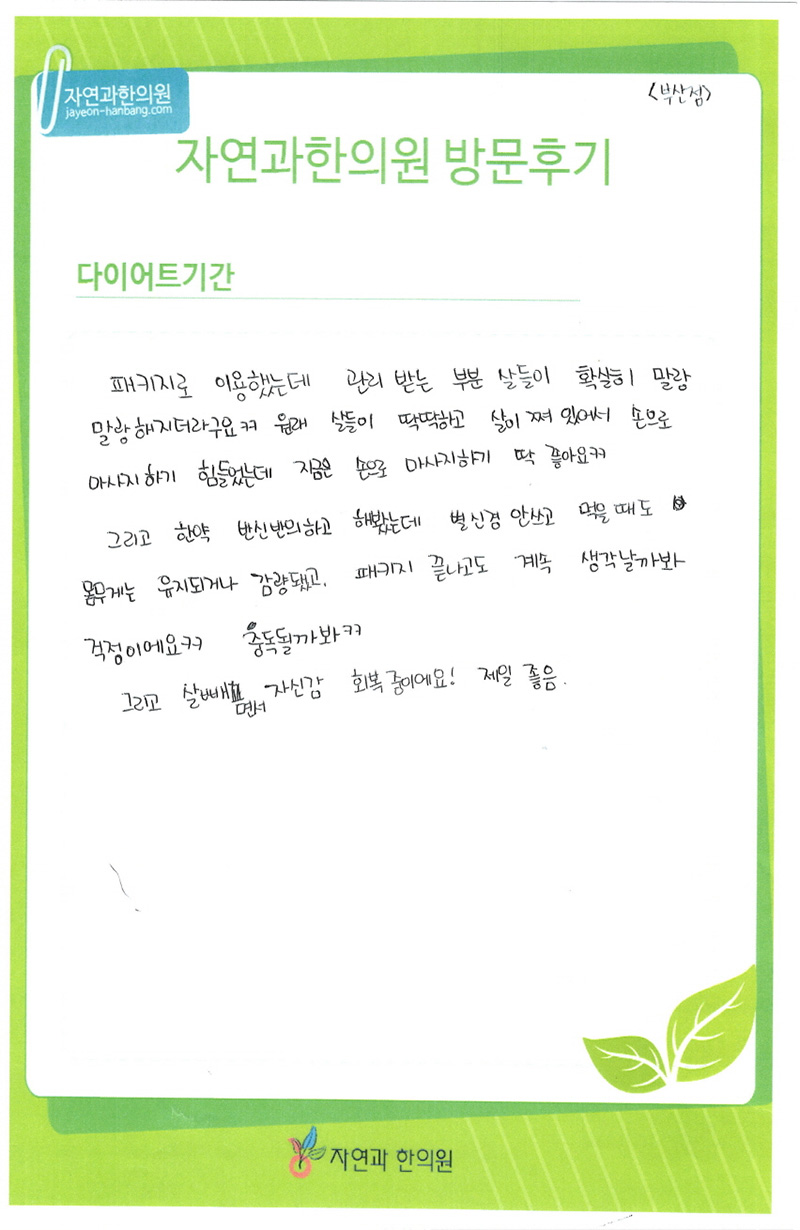 자연과한의원
jayeon-hanbang.com
<부산점>
자연과한의원 방문후기
다이어트기간
패키지로 이용했는데 관리 받는 부분 살들이 확실히 말랑
말랑해지더라구요ㅋㅋ 원래 살들이 딱딱하고 살이 쪄 있어서 손으로
마사지하기 힘들었는데 지금은 손으로 마사지하기 딱 좋아요ㅋㅋ
그리고 한약 반신반의하고 해봤는데 별신경 안쓰고 먹을 때도
몸무게는 유지되거나 감량됐고, 패키지 끝나고도 계속 생각날까봐
걱정이에요ㅋㅋ 중독될까봐ㅋㅋ
그리고 살빼면서 자신감 회복 중이에요! 제일 좋음.
자연과 한의원